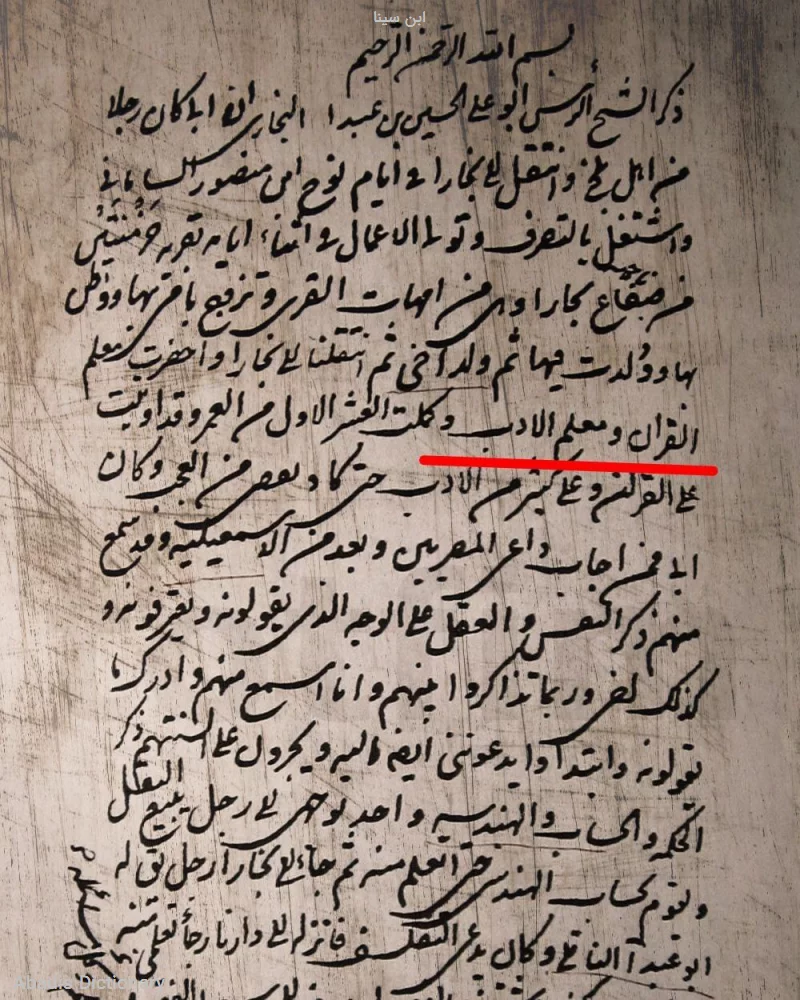 ابن سينا
بسم الله الرحمن الرحيم
ذكر الشيخ الرئيس ابو علي الحسين بن عبدا البخاري ان اباه كان رجلا
من اهل بلخ وانتقل الى بخارا في ايام نوح ابن منصور الساماني
واشتغل بالتصرف وتولى الاعمال في اثناء ايامه بقرية خرمثين
من ضياع بخارا وهي من امهات القرى وتزوج بامي بها ووطن
بها وولدت فيها ثم ولد اخي ثم انتقلنا الى بخارا واحضرت معلم
القران ومعلم الادب وكملت العشر الاول من العمر وقد اوتيت
على القران وعلى كثير من الادب حتى كاد يعضي من العجب وكان
ابي ممن اجاب داعي المصريين ويعد من الاسمعيلية وقد سمع
منهم ذكر النفس والعقل على الوجه الذي يقولونه ويعرفونه و
كذلك اخي وربما تذاكروا بينهم وانا اسمع منهم وادرك ما
يقولونه وابتدأوا يدعونني ايضا اليه ويجرون على السنتهم ذكر
الحكمه والحساب والهندسه واخد يوجهني الى رجل يبيع البقل
ويقوم بحساب الهند حتى اتعلم منه ثم جاء الى بخارا رجل يقال له
ابو عبدا الناتلي وكان يدعى التفلسف فانزله ابي دارنا رجاء تعلمي منه
Dictionary